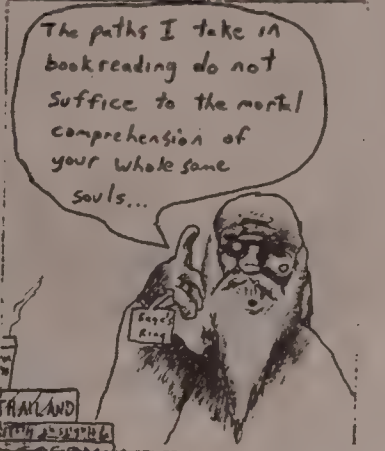 The paths I take in
bookreading do not
suffice to the mortal
comprehension of
your wholesome
souls...
Sage's
Ring
TRAILAND